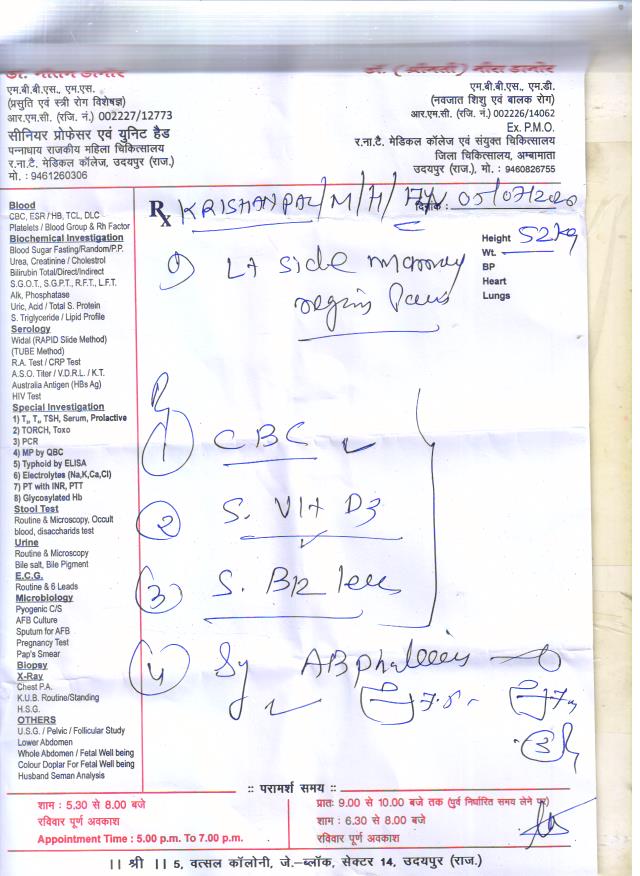 डॉ. (श्रीमती) मीरा डामोर
एम.बी.बी.एस., एम.एस.
(प्रसुति एवं स्त्री रोग विशेषज्ञ)
आर.एम.सी. (रजि. नं.) 002227/12773
सीनियर प्रोफेसर एवं युनिट हैड
पन्नाधाय राजकीय महिला चिकित्सालय
र.ना.टै. मेडिकल कॉलेज, उदयपुर (राज.)
मो. : 9461260306
एम.बी.बी.एस., एम.डी.
(नवजात शिशु एवं बालक रोग)
आर.एम.सी. (रजि. नं.) 002226/14062
Ex. P.M.O.
र.ना.टै. मेडिकल कॉलेज एवं संयुक्त चिकित्सालय
जिला चिकित्सालय, अम्बामाता
उदयपुर (राज.), मो. : 9460826755
Rx KRISHANPAL/M/H/17y दिनांक : 05/07/2020
Height
Wt. 52 kg
BP
Heart
Lungs
Blood
CBC, ESR / HB, TCL, DLC
Platelets / Blood Group & Rh Factor
Biochemical Investigation
Blood Sugar Fasting/Random/P.P.
Urea, Creatinine / Cholestrol
Bilirubin Total/Direct/Indirect
S.G.O.T., S.G.P.T., R.F.T., L.F.T.
Alk, Phosphatase
Uric, Acid / Total S. Protein
S. Triglyceride / Lipid Profile
Serology
Widal (RAPID Slide Method)
(TUBE Method)
R.A. Test / CRP Test
A.S.O. Titer / V.D.R.L. / K.T.
Australia Antigen (HBs Ag)
HIV Test
Special Investigation
1) T₃, T₄, TSH, Serum, Prolactive
2) TORCH, Toxo
3) PCR
4) MP by QBC
5) Typhoid by ELISA
6) Electrolytes (Na,K,Ca,Cl)
7) PT with INR, PTT
8) Glycosylated Hb
Stool Test
Routine & Microscopy, Occult
blood, disaccharids test
Urine
Routine & Microscopy
Bile salt, Bile Pigment
E.C.G.
Routine & 6 Leads
Microbiology
Pyogenic C/S
AFB Culture
Sputum for AFB
Pregnancy Test
Pap's Smear
Biopsy
X-Ray
Chest P.A.
K.U.B. Routine/Standing
H.S.G.
OTHERS
U.S.G. / Pelvic / Follicular Study
Lower Abdomen
Whole Abdomen / Fetal Well being
Colour Doplar For Fetal Well being
Husband Seman Analysis
Lt side
1 CBC
2 S. Vit D3
3 S. B12
4 Sy
:: परामर्श समय ::
शाम : 5.30 से 8.00 बजे
रविवार पूर्ण अवकाश
Appointment Time : 5.00 p.m. To 7.00 p.m.
प्रातः 9.00 से 10.00 बजे तक (पुर्व निर्धारित समय लेने पर)
शाम : 6.30 से 8.00 बजे
रविवार पूर्ण अवकाश
।। श्री ।। 5, वत्सल कॉलोनी, जे.–ब्लॉक, सेक्टर 14, उदयपुर (राज.)